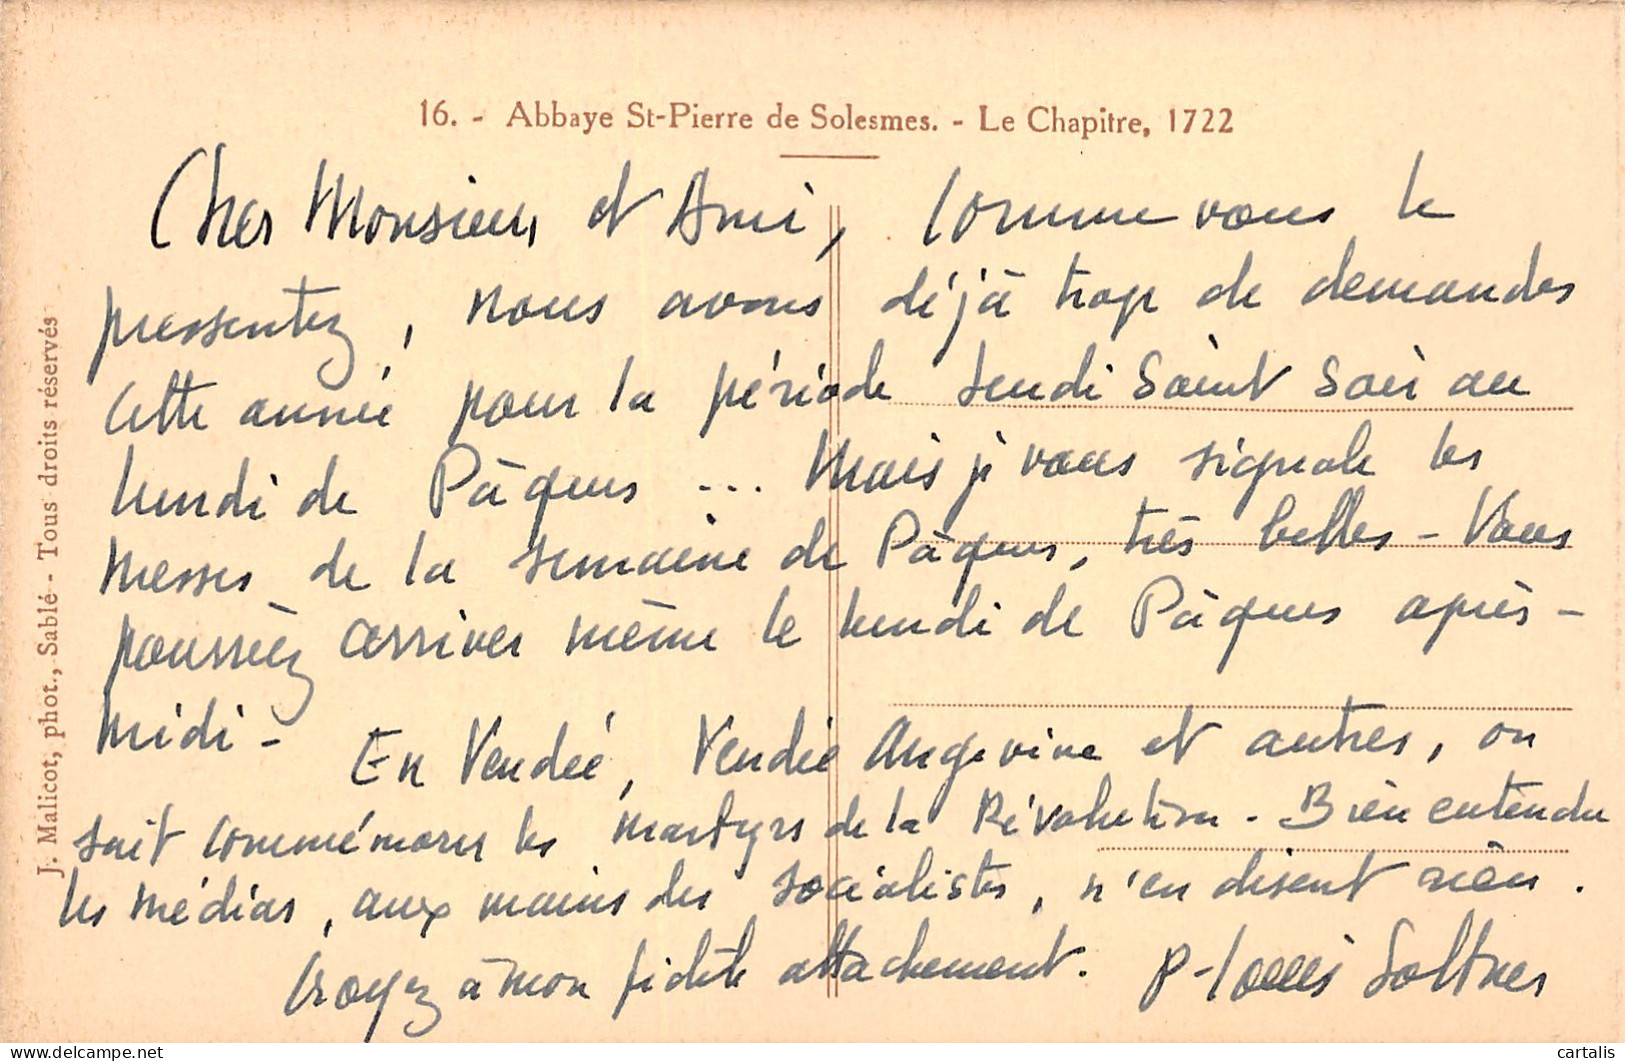 16. - Abbaye St-Pierre de Solesmes. - Le Chapitre, 1722
Cher Monsieur et Ami, Comme vous le
pressentez, nous avons déjà trop de demandes
cette année pour la période Jeudi Saint soir au
lundi de Pâques ... Mais je vous signale les
messes de la semaine de Pâques, très belles - Vous
pourriez arriver même le lundi de Pâques après-
midi -
En Vendée, Vendée Angevine et autres, on
sait commémorer les martyrs de la Révolution. Bien entendu
les médias, aux mains des socialistes, n'en disent rien.
Croyez à mon fidèle attachement. P-Louis Soltner
J. Malicot, phot., Sablé - Tous droits réservés
cartalis